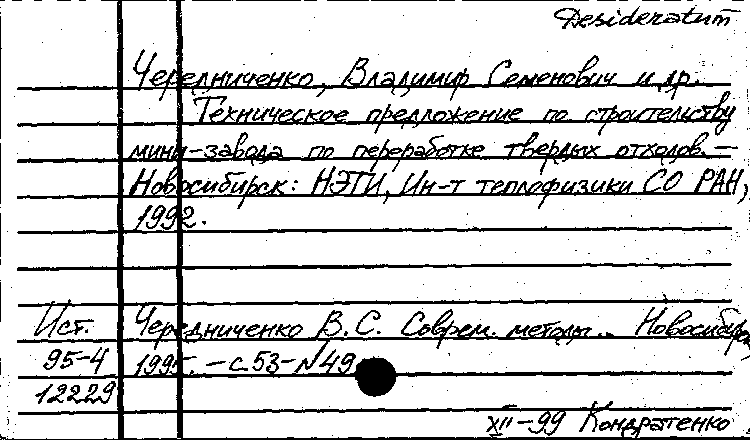 Desideratum
Чередниченко, Владимир Семенович и др.
Техническое предложение по строительству
мини-завода по переработке твердых отходов. –
Новосибирск: НЭТИ, Ин-т теплофизики СО РАН,
1992.
Ист. Чередниченко В.С. Соврем. методы.. Новосибирск
95-4 1995. – с.53 – №49
12229
XII-99 Кондратенко